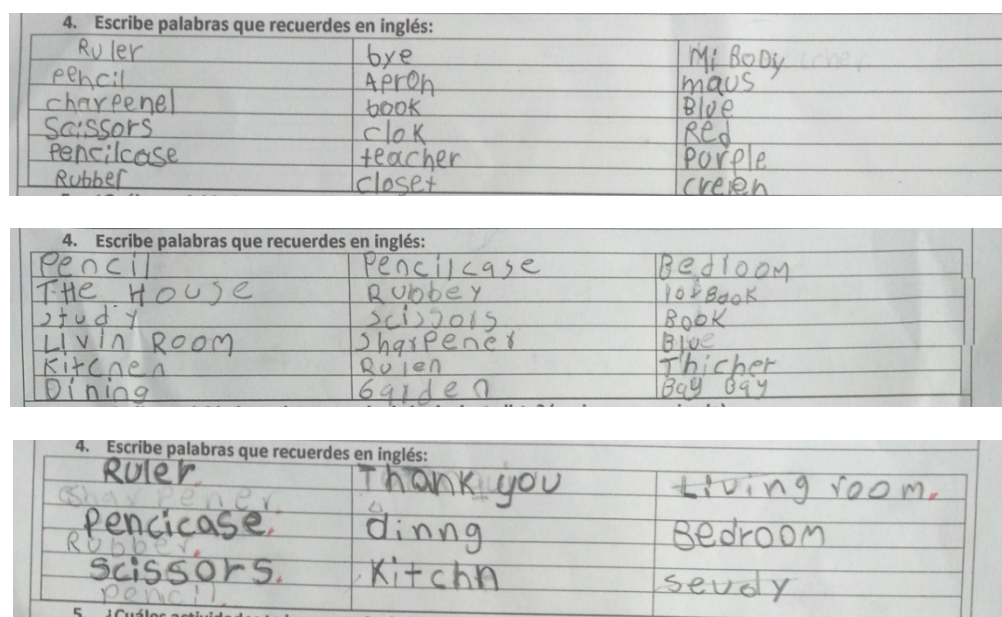 4. Escribe palabras que recuerdes en inglés:
Ruler bye Mi BODy
pencil APron maus
charpenel book Blue
Scissors clok Red
Pencilcase teacher Purple
Rubber closet creien
4. Escribe palabras que recuerdes en inglés:
Pencil Pencilcase Bedloom
THe House Rubbey BooK
study Scissors BooK
Livin Room SharPener Blue
Kitchen Rulen Thicher
Dining Garden Bay Bay
4. Escribe palabras que recuerdes en inglés:
Ruler. Thank you Living room.
Sharpener.
Pencicase. dinng Bedroom
Rubber.
Scissors. Kitchn seudy
pencil.
5. ¿Cuáles